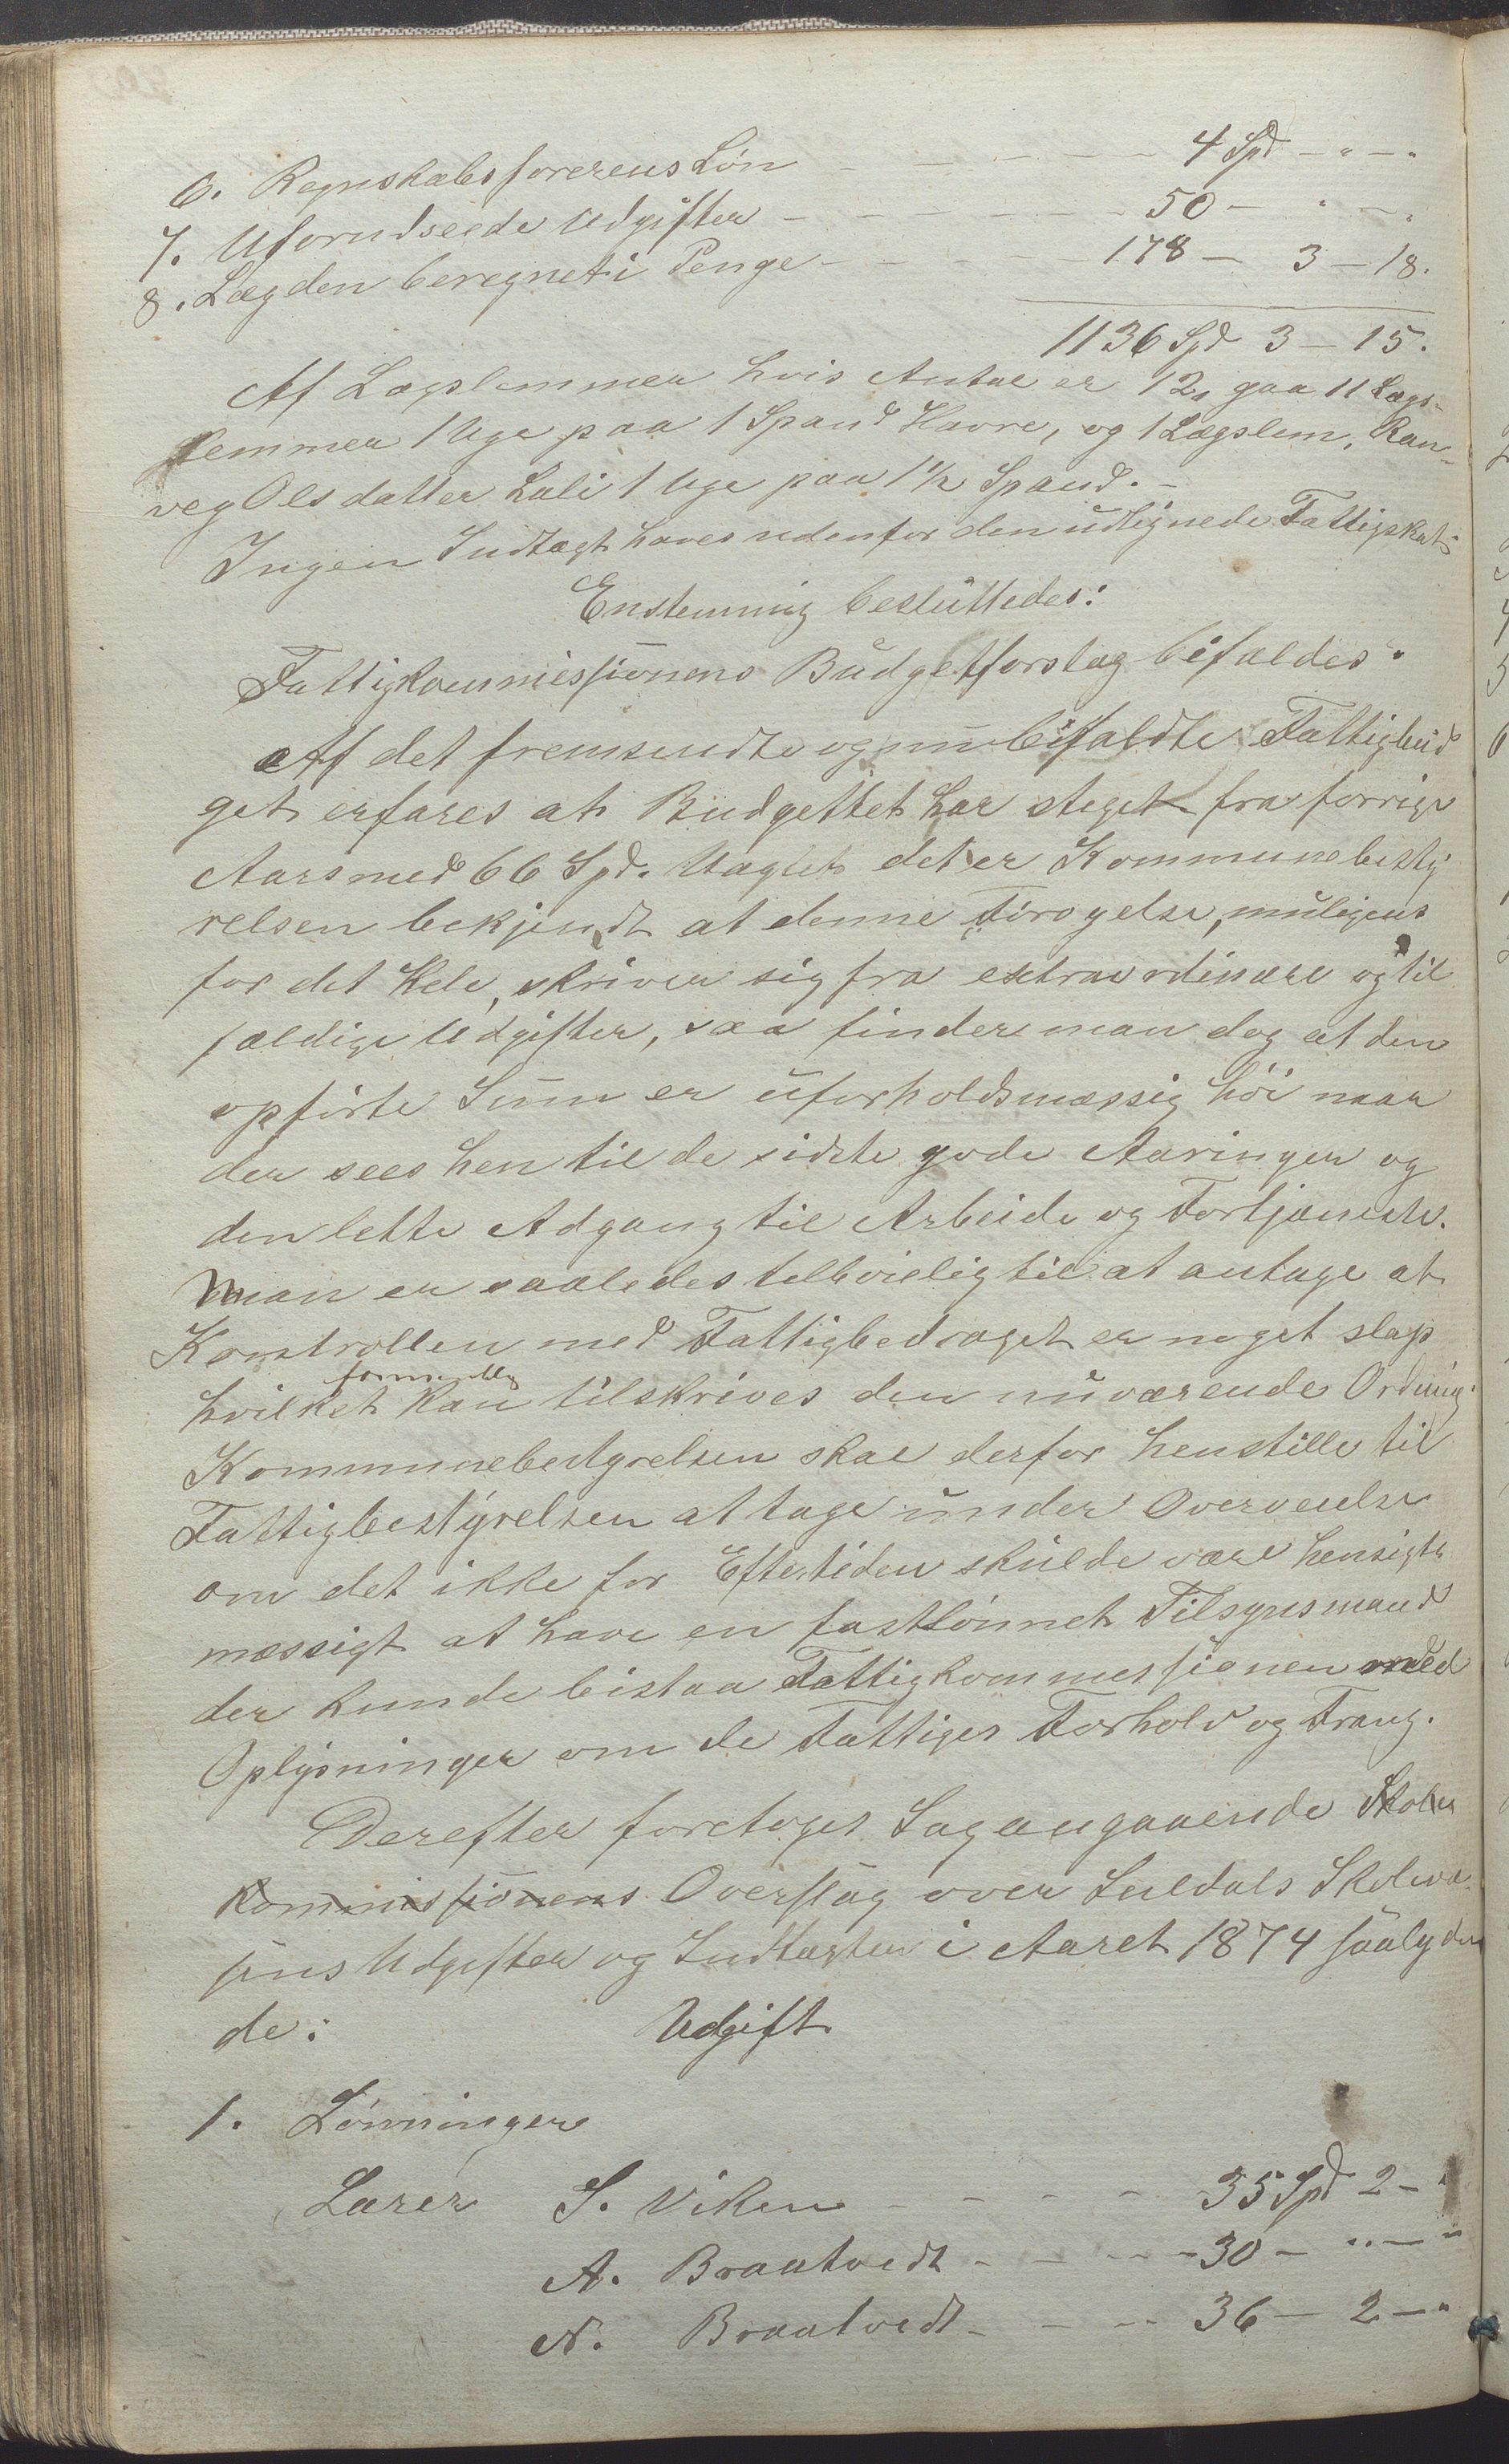 6. Regnskabsførerens Løn - - - - - 4 Spd - " - "
7. Uforudseede Udgifter - - - - - - 50 - " - "
8. Lægden beregnet i Penge - - - - 178 - 3 - 18.
1136 Spd 3 - 15.
Af Lægslemmer hvis Antal er 12, gaa 11 Lægs-
lemmer 1 Uge paa 1 Spand Havre, og 1 Lægslem, Ran-
veg Olsdatter Lali 1 Uge paa 1 1/2 Spand. -
Ingen Indtægt haves udenfor den udlignede Fattigskat.
Enstemmig besluttedes:
Fattigkommissionens Budgetforslag bifaldes.
Af det fremsendte og nu bifaldte Fattigbud
get erfares at Budgettet har steget fra forrige
Aars med 66 Spd. Uagtet det er Kommunebesty
relsen bekjendt at denne Forøgelse, muligens
for det Hele, skriver sig fra extraordinære og til
fældige Udgifter, saa finder man dog at den
opførte Sum er uforholdsmæssig høi naar
der sees hen til de sidste gode Aaringer og
den lette Adgang til Arbeide og Fortjeneste.
Man er saaledes tilbøielig til at antage at
Kontrollen med Fattigbedraget er noget slap
hvilket kan tilskrives den nuværende Ordning.
Kommunebestyrelsen skal derfor henstille til
Fattigbestyrelsen at tage under Overveielse
om det ikke for Eftertiden skulde være hensigts
mæssigt at have en fastlønnet Tilsynsmand
der kunde bistaa Fattigkommissionen med
Oplysninger om de Fattiges Forhold og Trang.
Derefter foretoges Sag angaaende Skole
kommissionens Overslag over Suldals Skolevæ
sens Udgifter og Indtægter i Aaret 1874 saalyden
de: Udgift
1. Lønninger
Lærer S. Viken - - - - 35 Spd 2 - "
A. Braatvedt - - - - 30 - " - "
N. Braatvedt - - - 36 - 2 - "